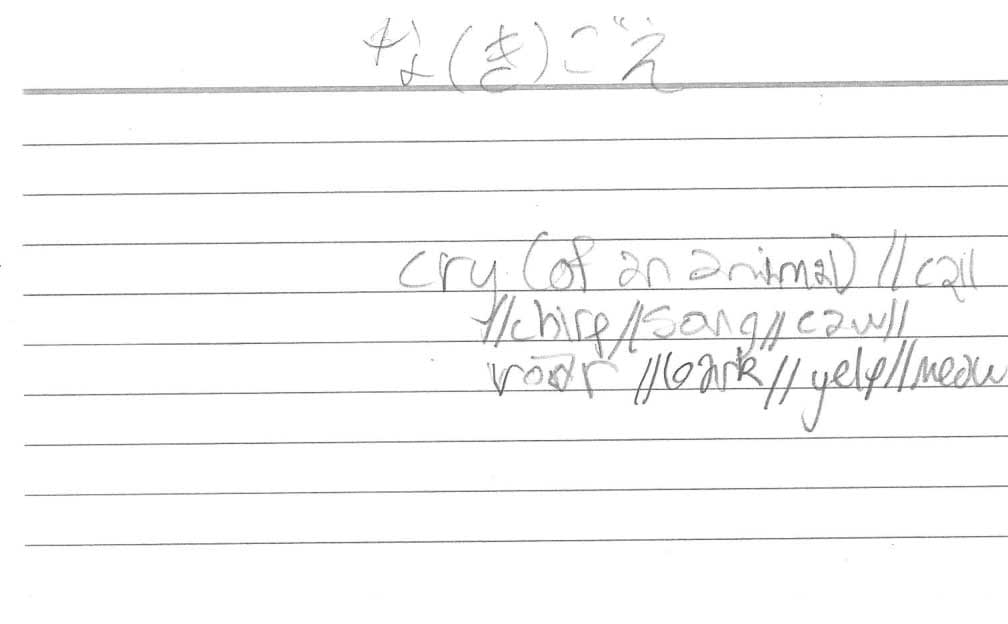 な(き)ごえ
cry (of an animal) // call
// chirp // song // caw //
roar // bark // yelp // meow